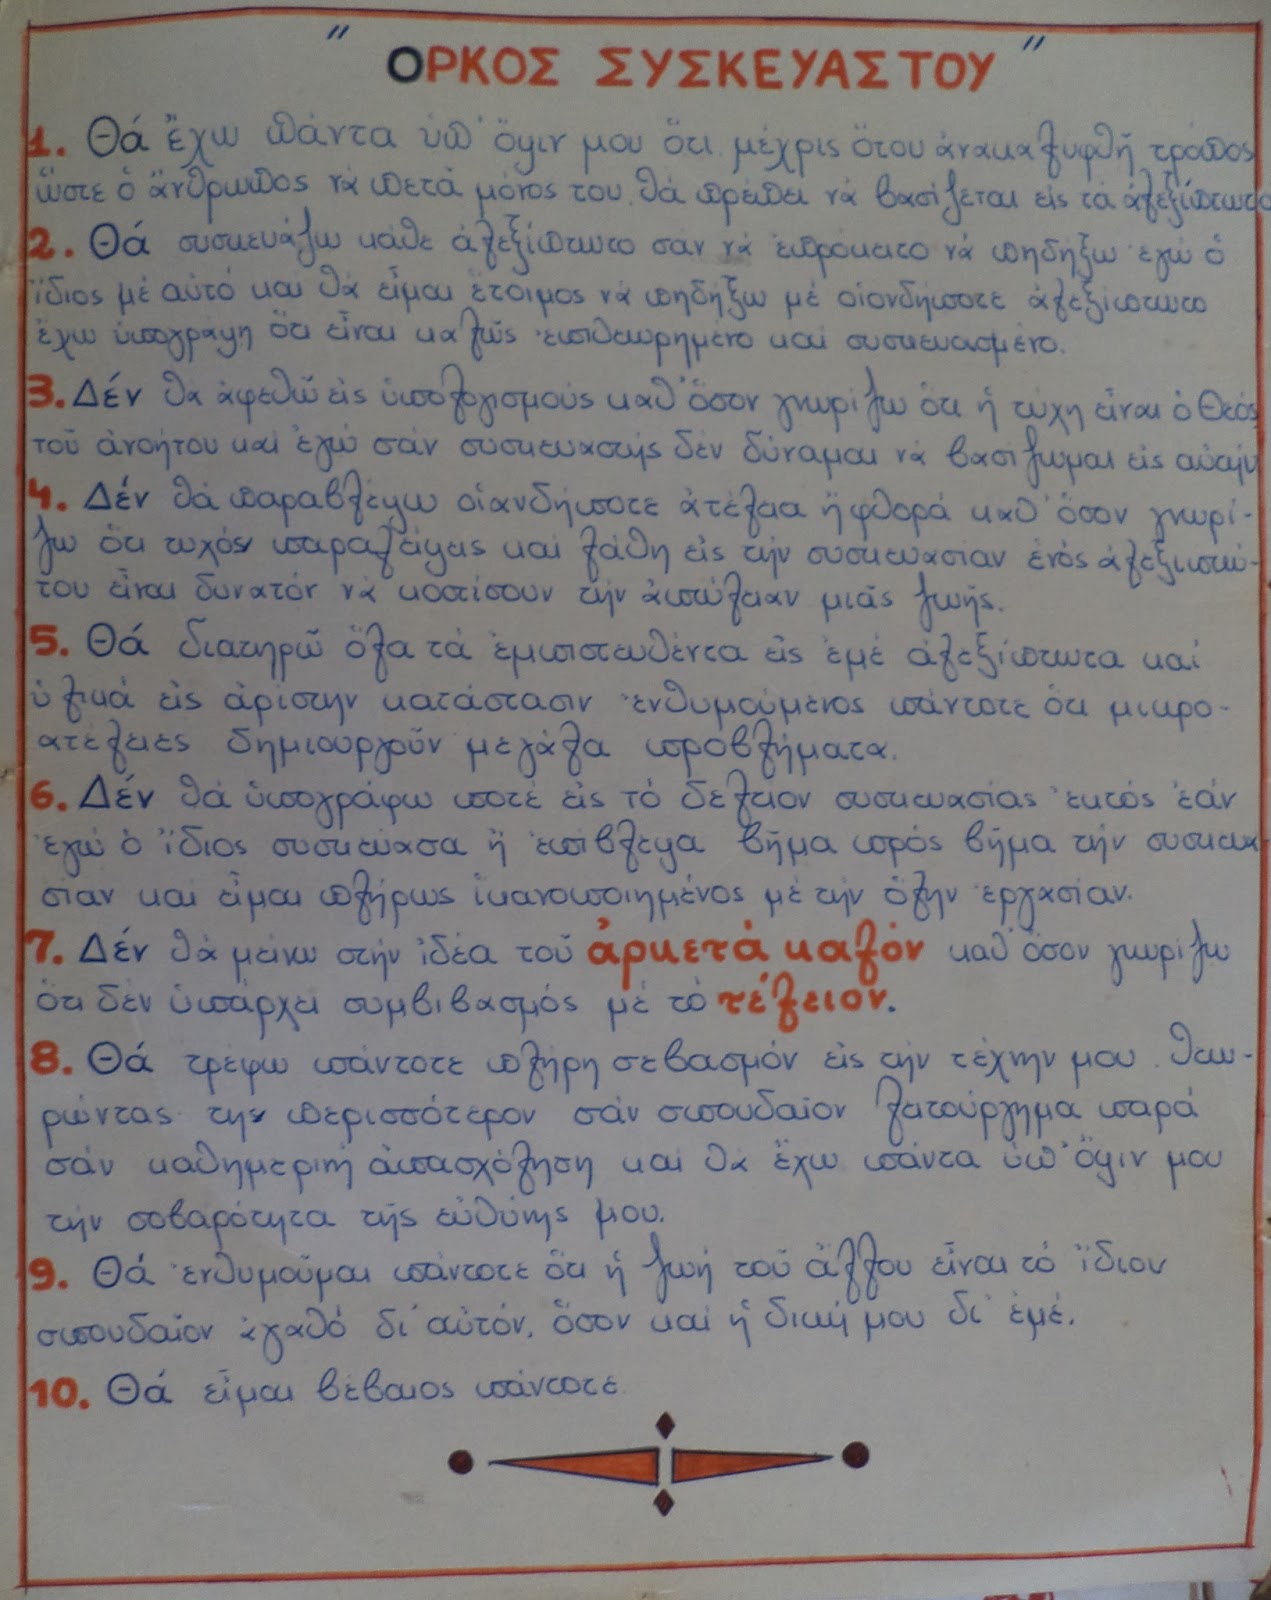 " ΟΡΚΟΣ ΣΥΣΚΕΥΑΣΤΟΥ "
1. Θά ἔχω πάντα ὑπ' ὄψιν μου ὅτι μέχρις ὅτου ἀνακαλυφθῆ τρόπος
ὥστε ὁ ἄνθρωπος νά πετᾶ μόνος του, θά πρέπει νά βασίζεται εἰς τά ἀλεξίπτωτα
2. Θά συσκευάζω κάθε ἀλεξίπτωτο σάν νά ἐπρόκειτο νά πηδήξω ἐγώ ὁ
ἴδιος μέ αὐτό καί θά εἶμαι ἕτοιμος νά πηδήξω μέ οἱονδήποτε ἀλεξίπτωτο
ἔχω ὑπογράψη ὅτι εἶναι καλῶς ἐπιθεωρημένο καί συσκευασμένο.
3. Δέν θά ἀφεθῶ εἰς ὑπολογισμούς καθ' ὅσον γνωρίζω ὅτι ἡ τύχη εἶναι ὁ Θεός
τοῦ ἀνοήτου καί ἐγώ σάν συσκευαστής δέν δύναμαι νά βασίζωμαι εἰς αὐτήν
4. Δέν θά παραβλέψω οἱανδήποτε ἀτέλεια ἤ φθορά καθ' ὅσον γνωρί-
ζω ὅτι τυχόν παραλείψεις καί λάθη εἰς τήν συσκευασίαν ἑνός ἀλεξιπτώ-
του εἶναι δυνατόν νά κοστίσουν τήν ἀπώλειαν μιᾶς ζωῆς.
5. Θά διατηρῶ ὅλα τά ἐμπιστευθέντα εἰς ἐμέ ἀλεξίπτωτα καί
ὑλικά εἰς ἀρίστην κατάστασιν ἐνθυμούμενος πάντοτε ὅτι μικρο-
ατέλειες δημιουργοῦν μεγάλα προβλήματα.
6. Δέν θά ὑπογράφω ποτέ εἰς τό δελτίον συσκευασίας ἐκτός ἐάν
ἐγώ ὁ ἴδιος συσκεύασα ἤ ἐπίβλεψα βῆμα πρός βῆμα τήν συσκευα
σίαν καί εἶμαι πλήρως ἱκανοποιημένος μέ τήν ὅλην ἐργασίαν.
7. Δέν θά μείνω στήν ἰδέα τοῦ ἀρκετά καλόν καθ' ὅσον γνωρίζω
ὅτι δέν ὑπάρχει συμβιβασμός μέ τό τέλειον.
8. Θά τρέφω πάντοτε πλήρη σεβασμόν εἰς τήν τέχνην μου θεω-
ρώντας την περισσότερον σάν σπουδαῖον λειτούργημα παρά
σάν καθημερινή ἀπασχόληση καί θά ἔχω πάντα ὑπ' ὄψιν μου
τήν σοβαρότητα τῆς εὐθύνης μου.
9. Θά ἐνθυμοῦμαι πάντοτε ὅτι ἡ ζωή τοῦ ἄλλου εἶναι τό ἴδιον
σπουδαῖον ἀγαθό δι' αὐτόν, ὅσον καί ἡ δική μου δι' ἐμέ.
10. Θά εἶμαι βέβαιος πάντοτε